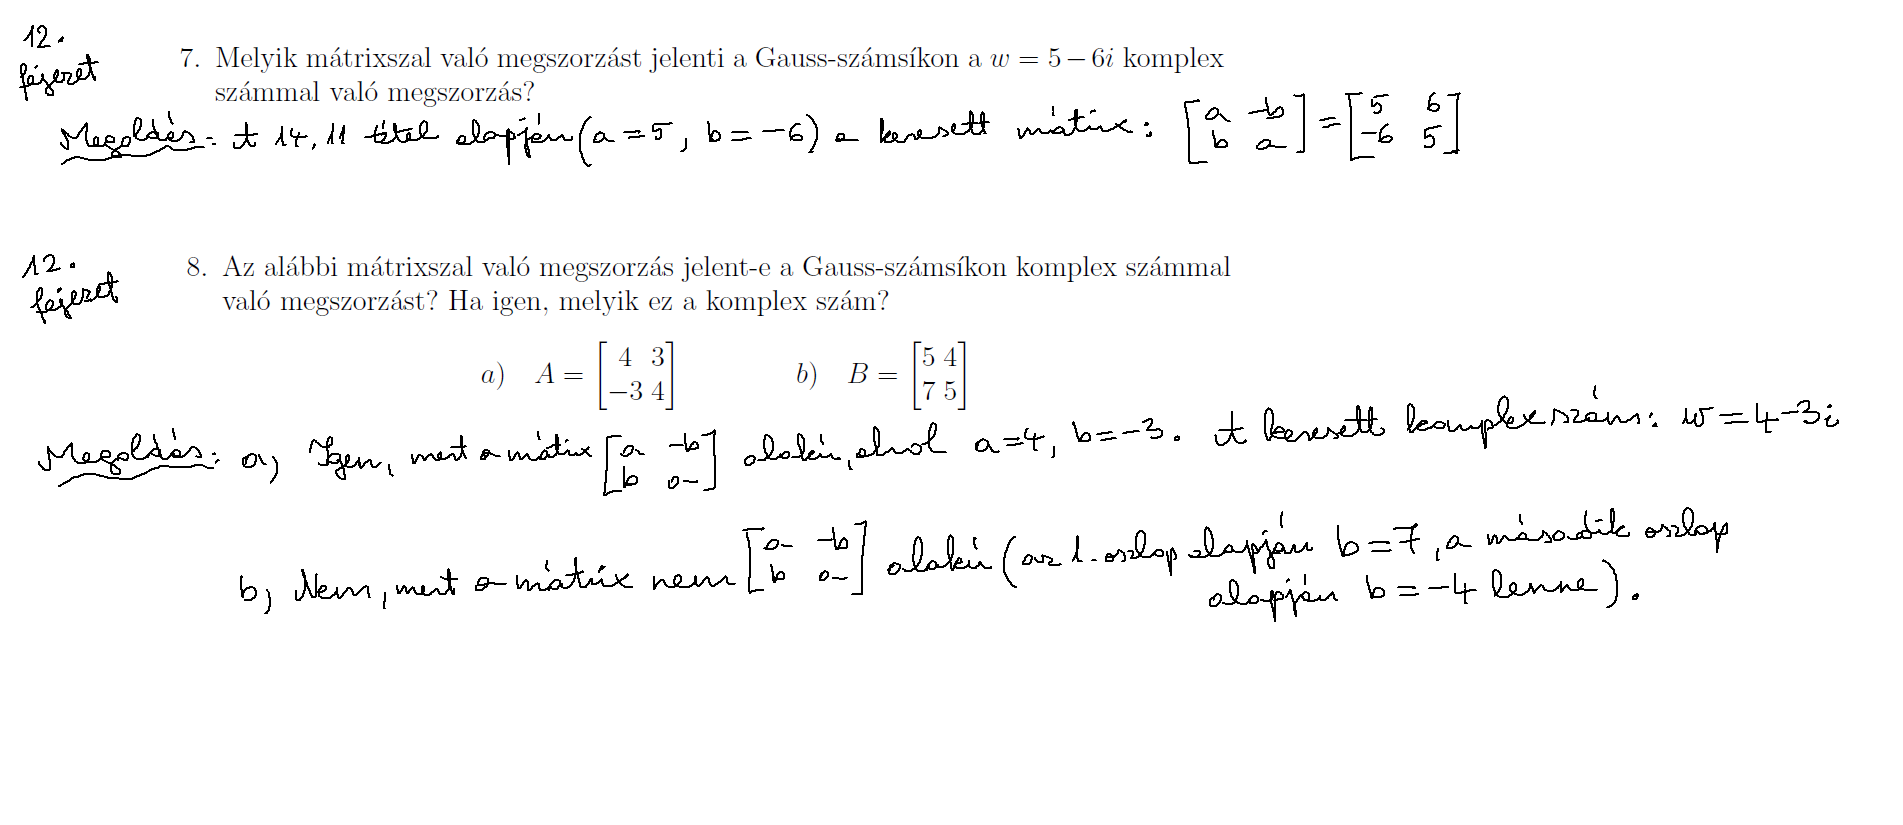 12.
fejezet
7. Melyik mátrixszal való megszorzást jelenti a Gauss-számsíkon a w = 5 − 6i komplex
számmal való megszorzás?
Megoldás: A 14.11 tétel alapján (a = 5, b = −6) a keresett mátrix: [a −b; b a] = [5 6; −6 5]
12.
fejezet
8. Az alábbi mátrixszal való megszorzás jelent-e a Gauss-számsíkon komplex számmal
való megszorzást? Ha igen, melyik ez a komplex szám?
a) A = [4 3; −3 4] b) B = [5 4; 7 5]
Megoldás: a) Igen, mert a mátrix [a −b; b a] alakú, ahol a=4, b=−3. A keresett komplex szám: w = 4−3i
b) Nem, mert a mátrix nem [a −b; b a] alakú (az 1. oszlop alapján b = 7, a második oszlop
alapján b = −4 lenne).